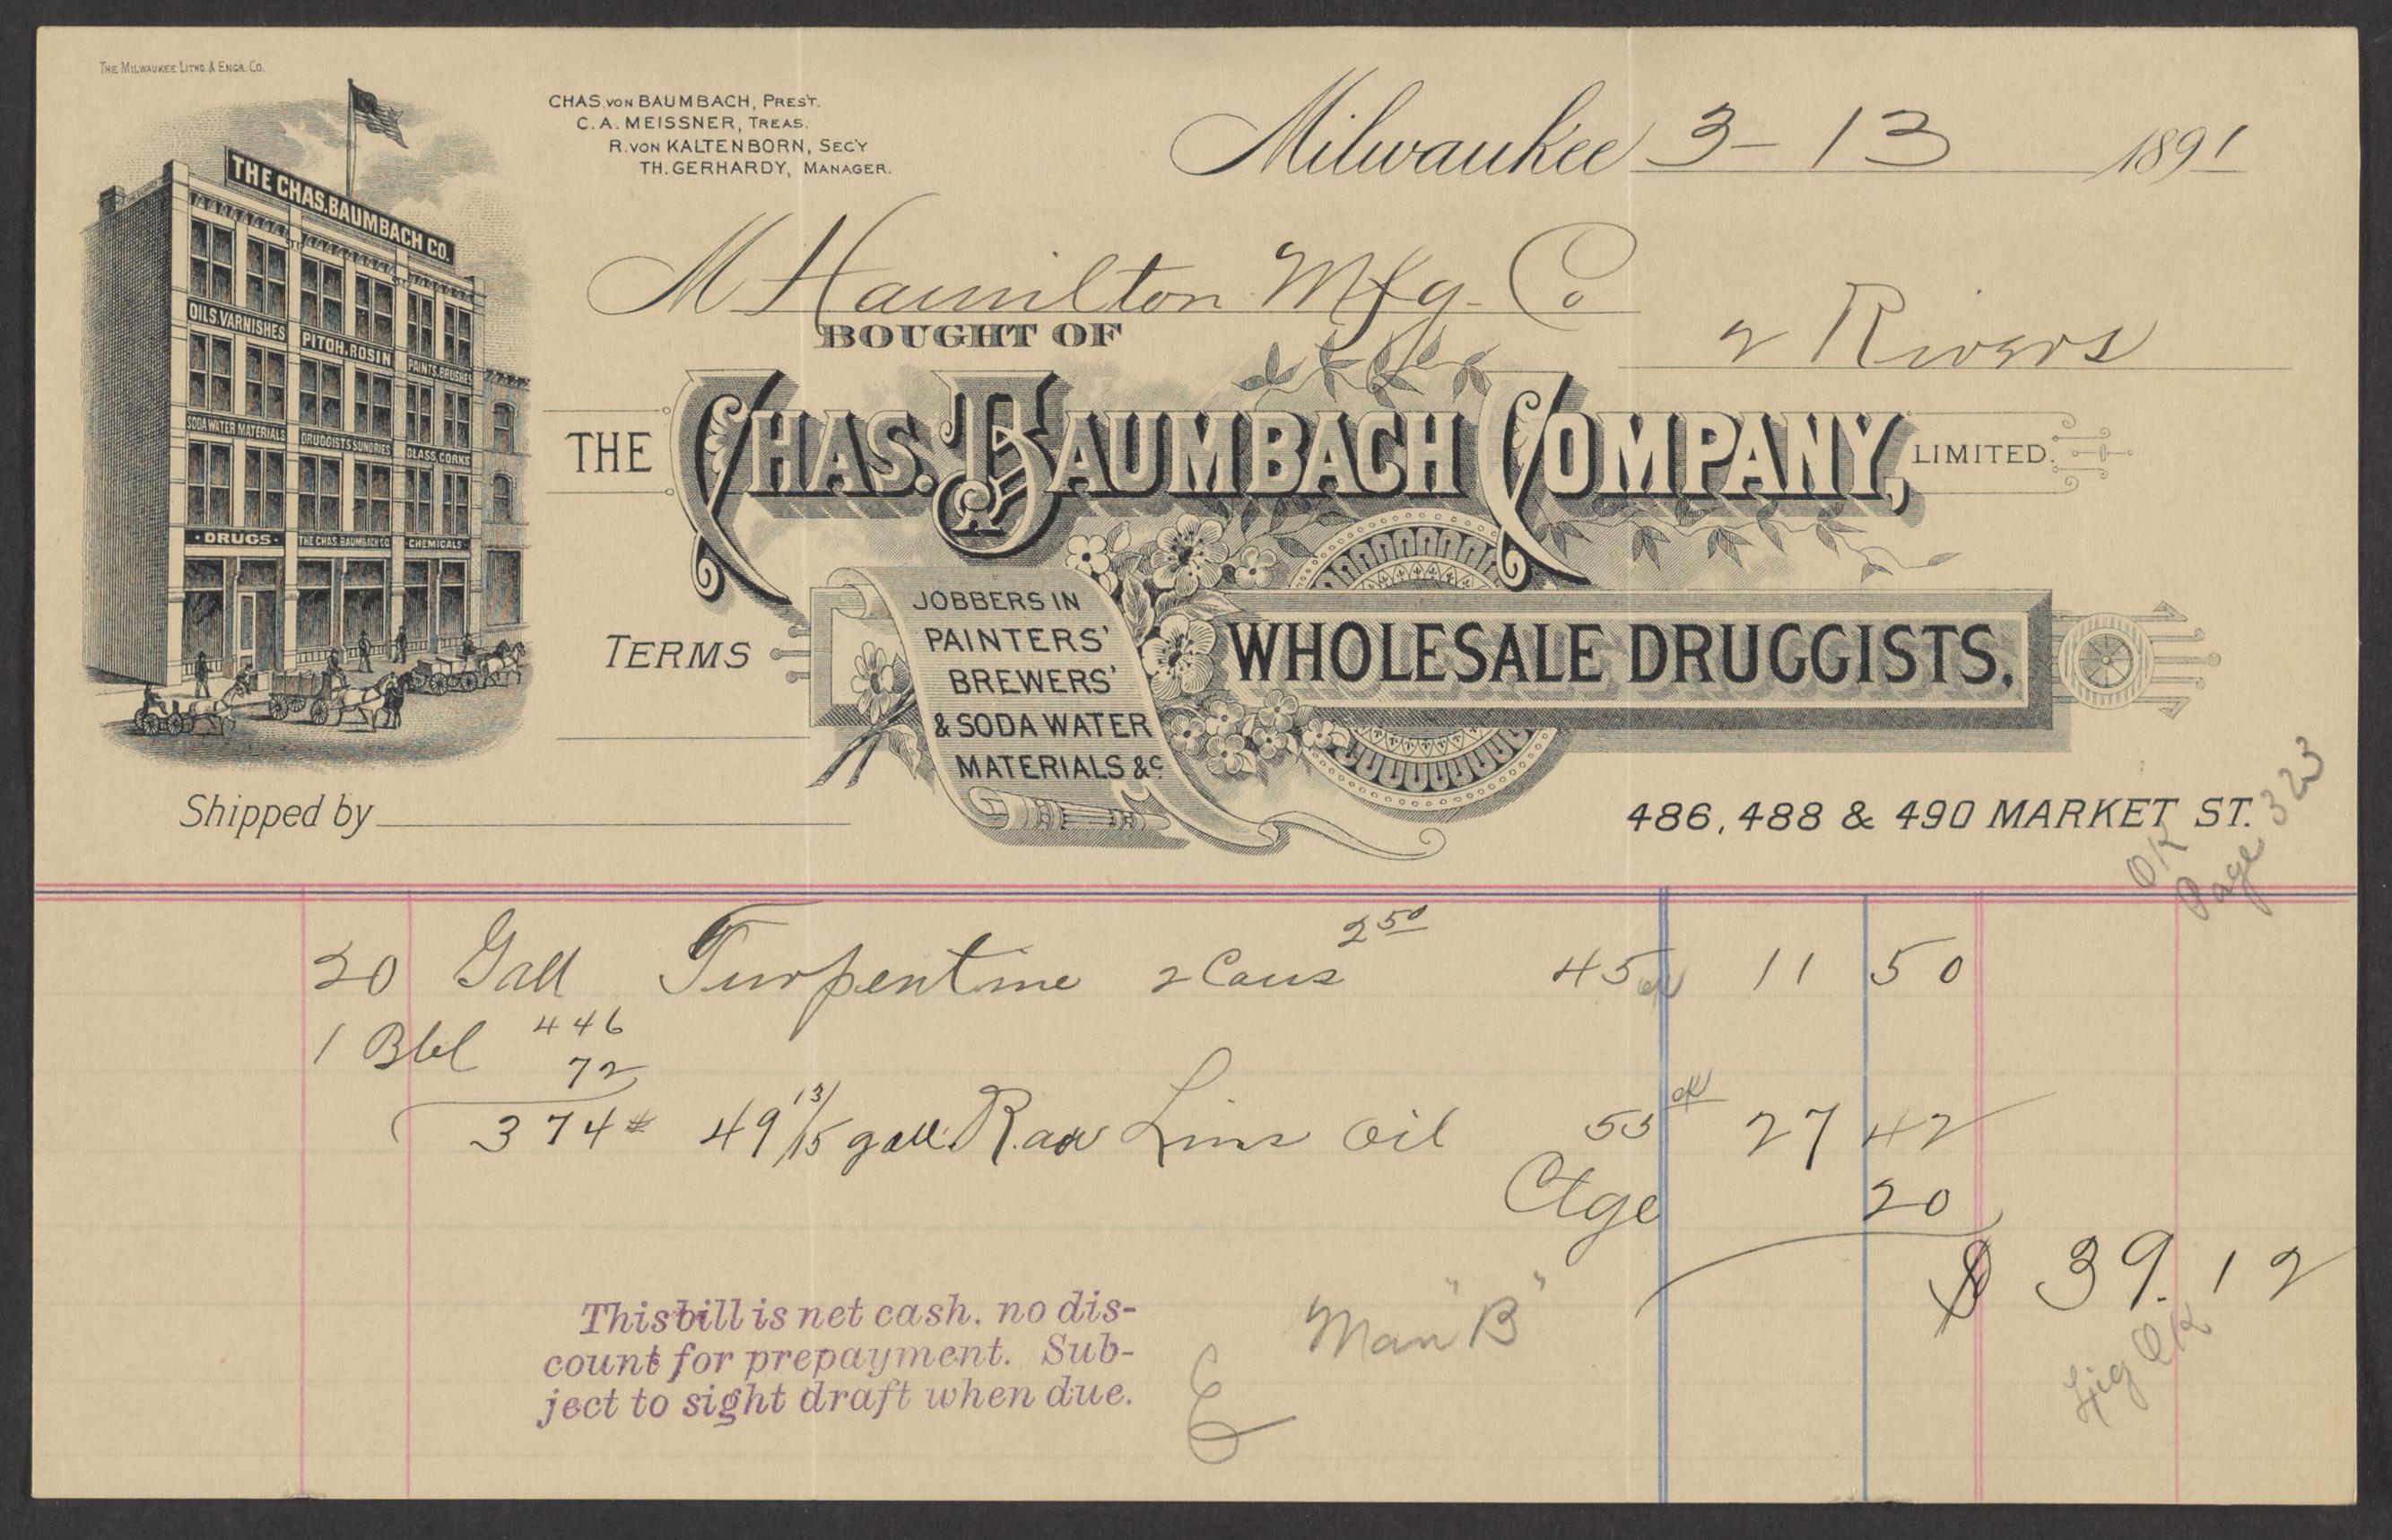 THE MILWAUKEE LITHO. & ENGR. CO.
CHAS. VON BAUMBACH, PREST.
C. A. MEISSNER, TREAS.
R. VON KALTENBORN, SEC'Y
TH. GERHARDY, MANAGER.
Milwaukee 3-13 1891
THE CHAS. BAUMBACH CO.
OILS. VARNISHES
PITCH, ROSIN
PAINTS, BRUSHES
SODA WATER MATERIALS
DRUGGISTS SUNDRIES
GLASS, CORKS
· DRUGS ·
THE CHAS. BAUMBACH CO
· CHEMICALS ·
M Hamilton Mfg. Co
2 Rivers
BOUGHT OF
THE CHAS. BAUMBACH COMPANY, LIMITED.
JOBBERS IN
PAINTERS'
BREWERS'
& SODA WATER
MATERIALS &c
WHOLESALE DRUGGISTS.
TERMS
Shipped by
486, 488 & 490 MARKET ST.
OK
Page 323
20 Gall Turpentine 2 Cans 2 50 45 ok 11 50
1 Bbl 446
72
374 # 49 13/15 gall. Raw Lins Oil 55 ok 27 42
Ctge 20
$ 39.12
This bill is net cash. no dis-
count for prepayment. Sub-
ject to sight draft when due.
Man "B"
Fig OK